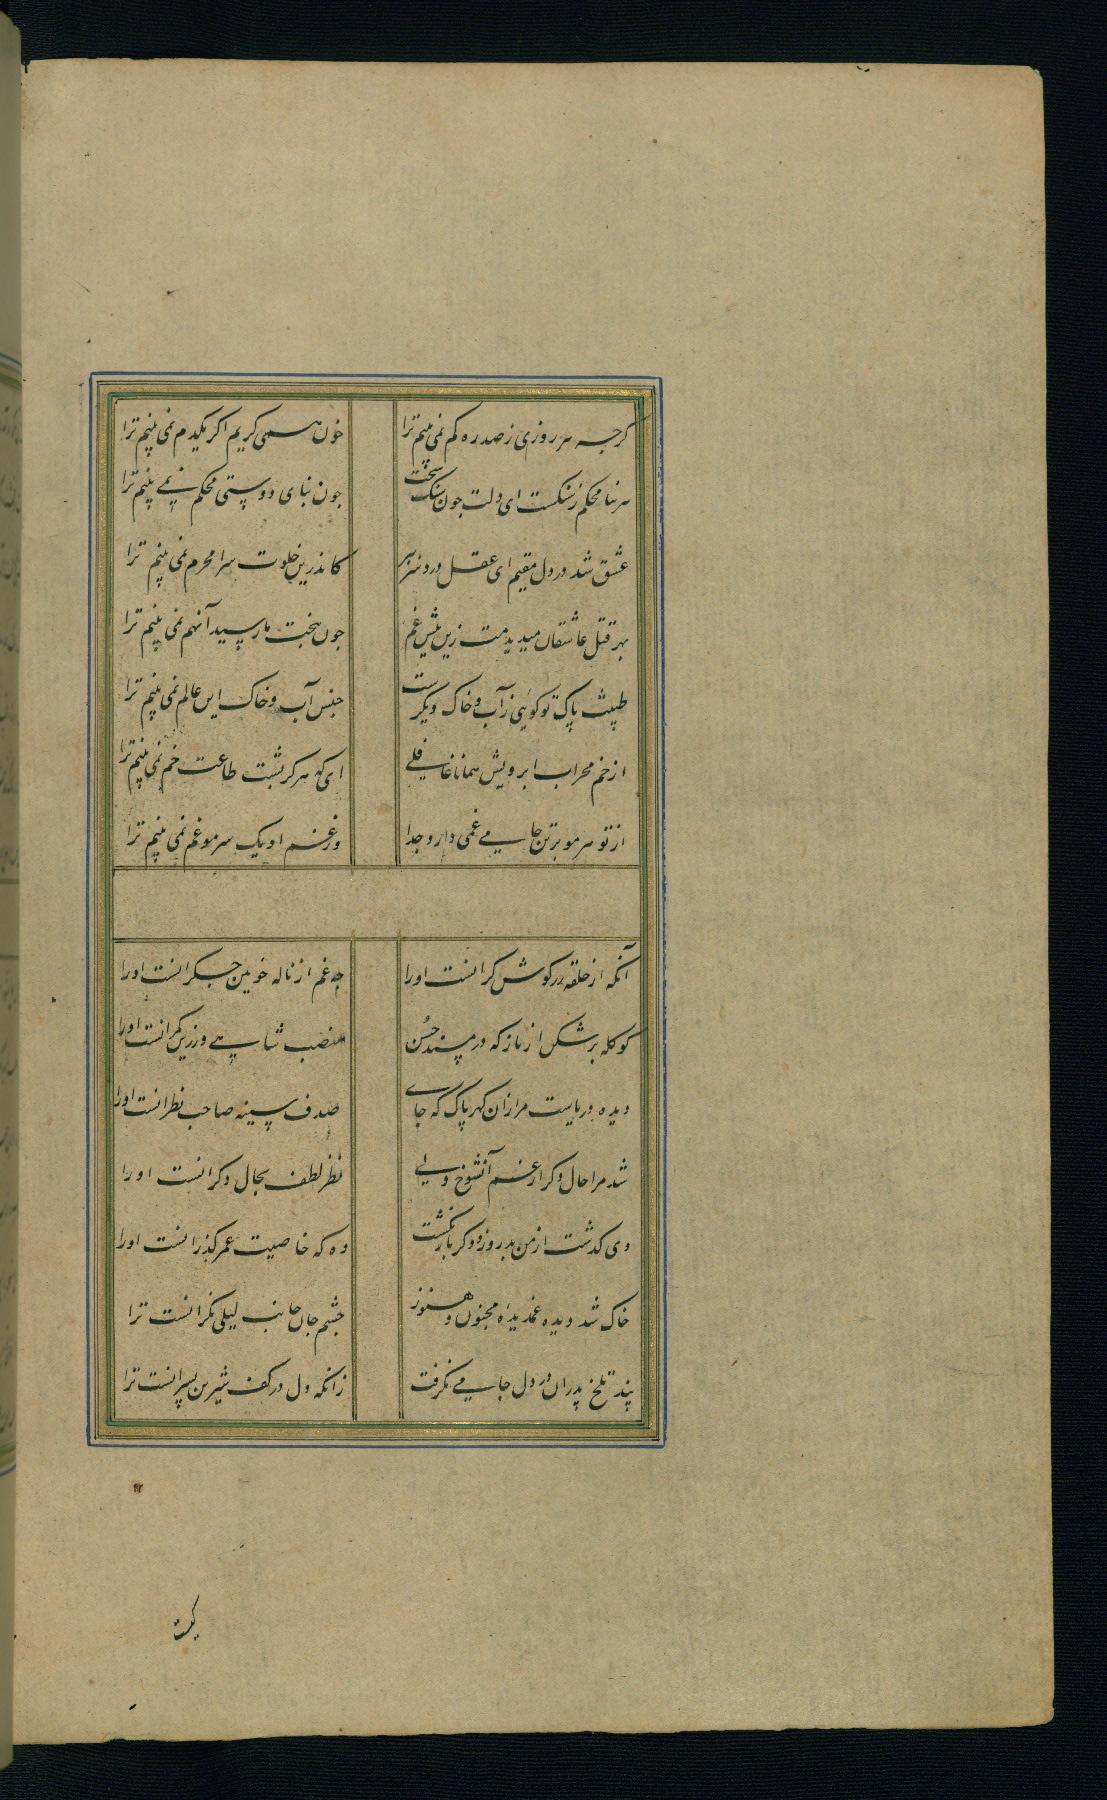 کرجه هر روزی ز صد ره کم نمی بینم ترا
خون همی کریم اکر یکدم نمی بینم ترا
هر بنا محکم ز سنکست ای دلت جون سنک سخت
جون بنای دوستی محکم نمی بینم ترا
عشق شد در دل مقیم ای عقل درد سر ببر
کاندرین خلوت سرا محرم نمی بینم ترا
بهر قتل عاشقان میدیدمت زین پیش غم
جون بنجت ما رسید آنهم نمی بینم ترا
طینت پاک تو کویی ز آب و خاک دیکرست
جنس آب و خاک این عالم نمی بینم ترا
از خم محراب ابرویش همانا غافلی
ای که هرکز پشت طاعت خم نمی بینم ترا
از تو سر مو بر تن جامی غمی دارد جدا
وز غم او یک سر مو غم نمی بینم ترا
آنکه از حلقه زر کوش کرانست اورا
جه غم از ناله خونین جکرانست اورا
کو کله بر شکن از ناز که در مسند حسن
منصب شاهی و زرین کمرانست اورا
دیده دریاست مرا زان کهر پاک که جای
صدف سینه صاحب نظرانست اورا
شد مرا حال دکر از غم آنشوخ ولی
نظر لطف بحال دکرانست اورا
دی کذشت از من بد روز و دکر باز نکشت
وه که خاصیت عمر کذرانست اورا
خاک شد دیده غمدیده مجنون و هنوز
جشم جان جانب لیلی نکرانست ترا
پند تلخ پدران در دل جامی نکرفت
زانکه دل در کف شیرین پسرانست ترا